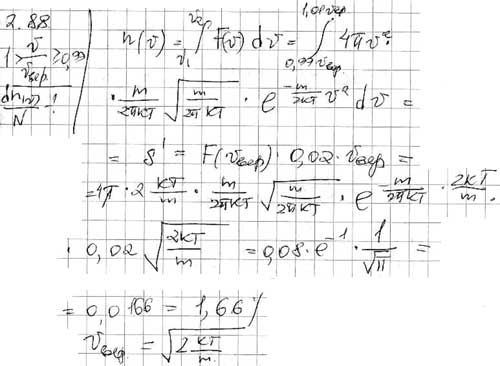 2.88
1 > v/vвер. ≥ 0,99
dn(v)/N - ?
n(v) = ∫_{v₁}^{vвер} F(v) dv = ∫_{0,99 vвер.}^{1,01 vвер} 4πv²
· m/2πkT √(m/2πkT) · e^{-m/2kT v²} dv =
= S' = F(vвер) · 0,02 · vвер =
= 4π · 2 kT/m · m/2πkT √(m/2πkT) · e^{-m/2πkT · 2kT/m} ·
· 0,02 √(2kT/m) = 0,08 · e⁻¹ · 1/√π =
= 0,0166 = 1,66%
vвер. = √(2 kT/m)